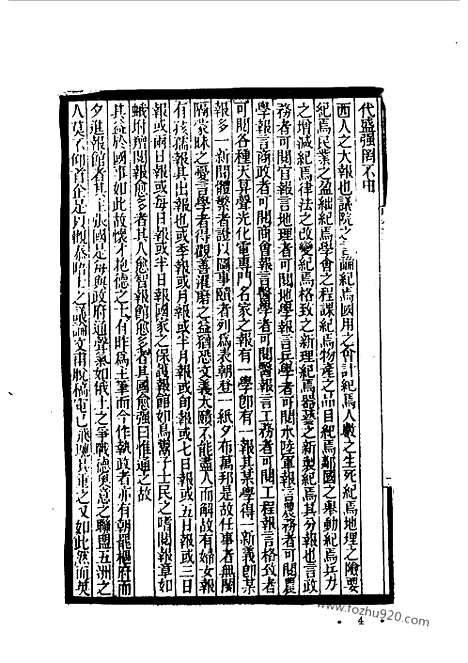 代盛强罔不由
西人之大報也議院之言論紀焉國用之會計紀焉人數之生死紀焉地理之險要
紀焉民業之盈絀紀焉學會之程課紀焉物產之品目紀焉鄰國之舉動紀焉兵力
之增減紀焉律法之改變紀焉格致之新理紀焉器藝之新製紀焉其分報也言政
務者可閱官報言地理者可閱地學報言兵學者可閱水陸軍報言農務者可閱農
學報言商政者可閱商會報言醫學者可閱醫報言工務者可閱工程報言格致者
可閱各種天算聲光化電專門名家之報有一學卽有一報其某學得一新義卽某
報多一新聞體繁者證以圖事賾者列為表朝登一紙夕布萬邦是故任事者無閡
隔蒙昧之憂言學者得觀善濯磨之益猶恐文義太賾不能盡人而解故有婦女報
有孩孺報其出報也或季報或月報或半月報或旬報或七日報或五日報或三日
報或兩日報或每日報或半日報國家之保護報館如鳥鬻子士民之嗜閱報章如
蟻附羶閱報愈多者其人愈智報館愈多者其國愈强曰惟通之故
其益於國事如此故懷才抱德之士有昨為主筆而今作執政者亦有朝罷樞府而
夕進報館者其主張國是每與政府通聲氣如俄土之爭戰德奧意之聯盟五洲之
人莫不仰首企足以觀泰晤士之議論文甫脫稿電已飛馳其重之又如此然而英
4
www.fozhu920.com